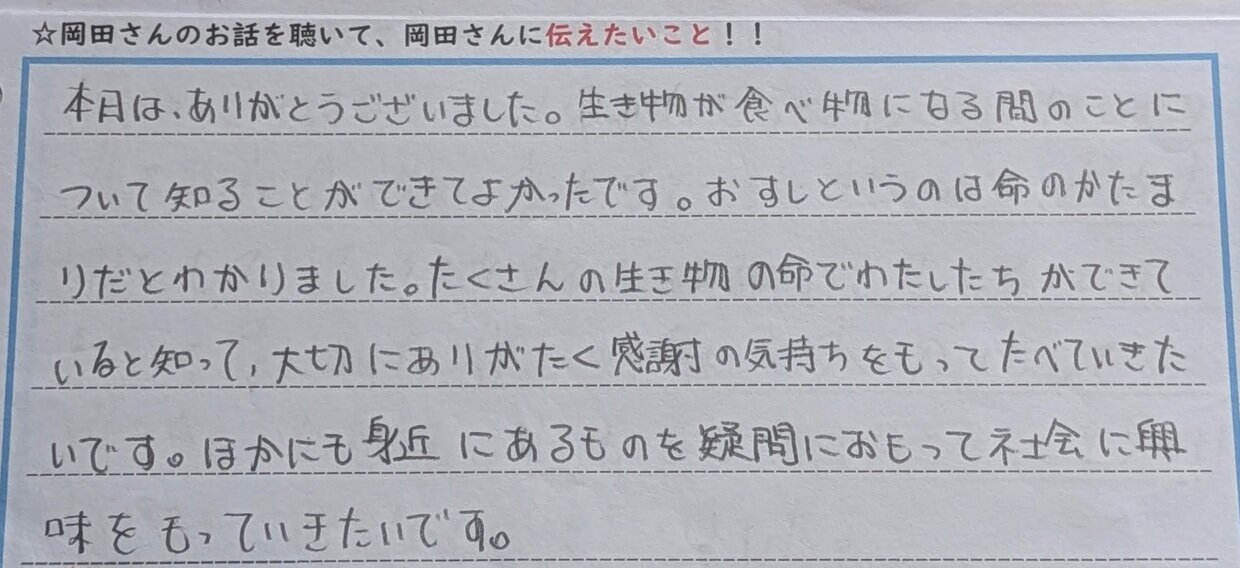 ☆岡田さんのお話を聴いて、岡田さんに伝えたいこと！！
本日は、ありがとうございました。生き物が食べ物になる間のことに
ついて知ることができてよかったです。おすしというのは命のかたま
りだとわかりました。たくさんの生き物の命でわたしたちができて
いると知って、大切にありがたく感謝の気持ちをもってたべていきた
いです。ほかにも身近にあるものを疑問におもって社会に興
味をもっていきたいです。